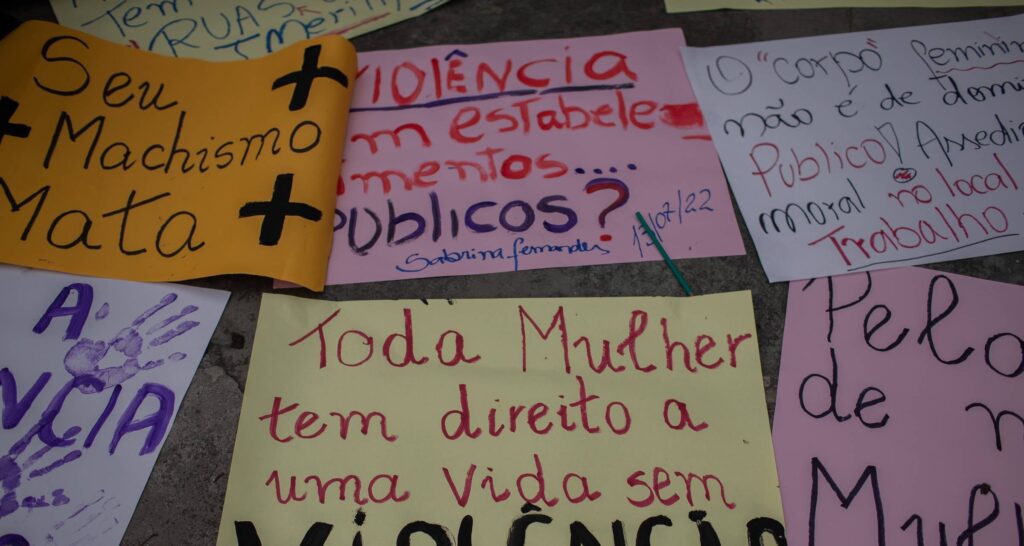 Tem
RUAS
Seu
Machismo
Mata
VIOLÊNCIA
Em estabele
imentos....
PÚBLICOS?
Sabrina fernandes 13/07/22
O "corpo" feminin
não é de domi
Público! Assedi
moral no local
Trabalho
A
NCIA
Toda Mulher
tem direito a
uma vida sem
VIOLÊNCIA
Pelo
de
Mul